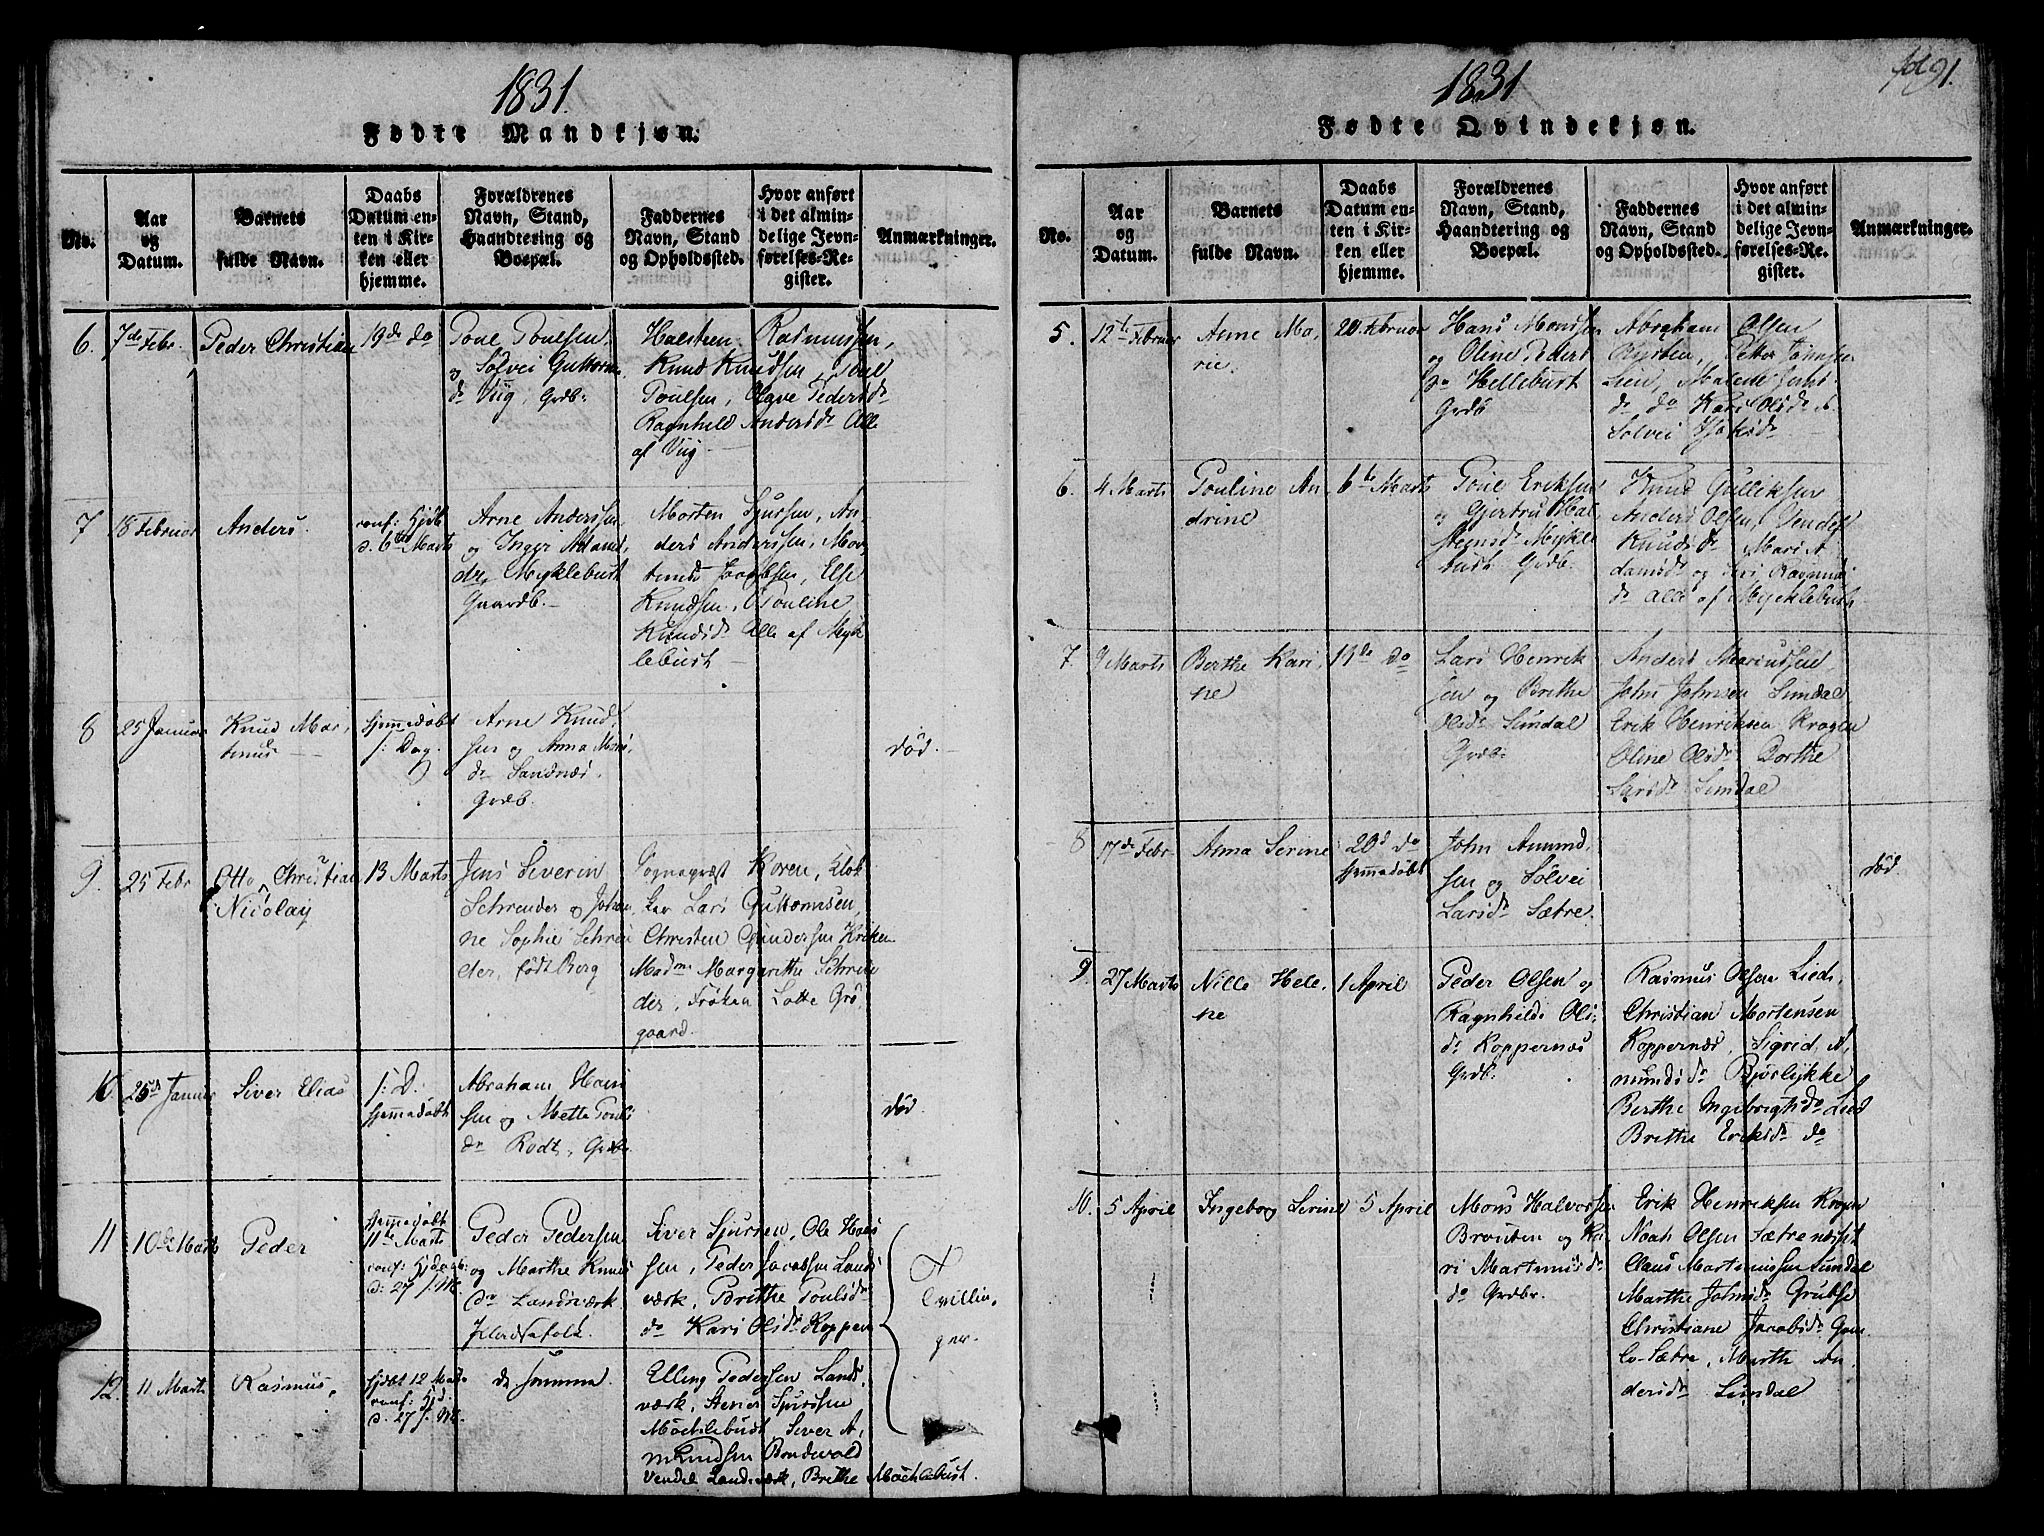 1831.
Fødte Mandkjøn.
No.
Aar
og
Datum.
Barnets
fulde Navn.
Daabs
Datum en-
ten i Kir-
ken eller
hjemme.
Forældrenes
Navn, Stand,
Haandtering og
Boepæl.
Faddernes
Navn, Stand
og Opholdssted.
Hvor anført
i det almin-
delige Jevn-
førelses-Re-
gister.
Anmærkninger.
6.
7de Febr.
Peder Christian
19de do
Poue Poulsen,
og Sølvei Guttorms
dr Viig, Grdb.
Halsteen Rasmussen,
Knud Knudsen, Poul
Poulsen, Olave Pedersdr
Ragnhild Andersdr Alle
af Viig
7
18 Februar
Anders.
conf: Hjdb
d. 6te Marts
Arne Andersen,
og Inger Amunds
dr, Myklebust
Gaardb.
Morten Sjursen, An-
ders Andersen, Mor-
tinus Jacobsen, Else
Knudsen, Pouline
Knudsdr Alle af Myk
lebust
8
25 Januar
Knud Mar-
tinus
hjemmedøbt
s: Dag.
Arne Knud-
sen og Anna Mons
dr Sandnæs.
Grdb.
død.
9.
25 Febr
Otto Christian
Nicolay
13 Marts
Jens Severin
Schreuder og Johan
ne Sophie Schreu
der, født Berg
Sognepræst Koren, Klok
ker Lars Guttormsen
Christen Gundersen Kriken
Madme Margarethe Schreu
der, Frøken Lotte Grø
gaard.
10.
25d Januar
Siver Elias
s: D:
hjemmedøbt
Abraham Hans
sen og Mette Pouls
dr Rodt, Grdbr.
død.
11
10de Marts
Peder
hjemmedøbt
11te Marts
conf: Hjdøb:
d: 27 s. M.
Peder Pedersen
og Marthe Knuds
dr Landsværk
Huusfolk.
Siver Sjursen, Ole Hans
sen, Peder Jacobsen Lands
værk, Brithe Poulsdr
do Kari Olsdr Koppen
Tvillin-
ger.
12.
11 Marts
Rasmus.
Hjdbt 12 Mar
conf: Hjd.
d. 27 s. M.
de samme
Elling Pedersen Lands
værk, Stener Sjursen
Möchlebust Siver A-
mundsen Bondevold
Vendel Landsværk, Brithe Möchlebust.
1831
fol 91.
Fødte Qvindekjøn.
No.
Aar
og
Datum.
Barnets
fulde Navn.
Daabs
Datum en-
ten i Kir-
ken eller
hjemme.
Forældrenes
Navn, Stand,
Haandtering og
Boepæl.
Faddernes
Navn, Stand
og Opholdssted.
Hvor anført
i det almin-
delige Jevn-
førelses-Re-
gister.
Anmærkninger.
5.
12te Februar
Anne Ma-
rie.
20 Februar
Hans Monssen
og Oline Peders
dr Hellebust
Grdb
Abraham Olsen
Petter Johnsen
Lien, Malene Johs
dr do Kari Olsdr
Solvei
6.
4 Marts
Pouline An
drine
6te Marts
Poue Eriksen
og Gjertru Hal
steensdr Mykle
bust Grdb.
Knud Gulliksen
Anders Olsen, Vendel
Knudsdr Mari A
damsdr og Siri Rasmus
dr alle af Myklebust
7.
9 Marts
Berthe Kari-
ne
13de do
Lars Henrik
sen og Brithe
Olsdr Sundal
Grdb:
Anders Mariussen
John Johnsen Sundal
Erik Henriksen Kragen
Oline Olsdr Dorthe
Larsdr Sundal
8
17de Febr
Anna Serine
20d do
hjemmedøbt
John Amund-
sen og Sølvei
Larsdr Sætre.
død.
9.
27 Marts
Nille Hele-
ne
1 April
Peder Olsen og
Ragnhilde Ols
dr Koppernæs
Grdb.
Rasmus Olsen Lied,
Christian Mortensen
Koppernæs, Sigrid A-
mundsdr Bjørlykke
Berthe Ingebrigtsdr Lied
Brithe Eriksdr do
10.
5 April
Ingeborg Serine
5 April
Mons Halvorsen
Brouten og Ka-
ri Martinusdr
do Grdbr.
Erik Henriksen Kragen
Noah Olsen Sætrenæst
Claus Martinussen Sundal
Marthe Johnsdr Grubse
Christiane Jacobsdr Gam
le-Sætre, Marthe An-
dersdr Sundal